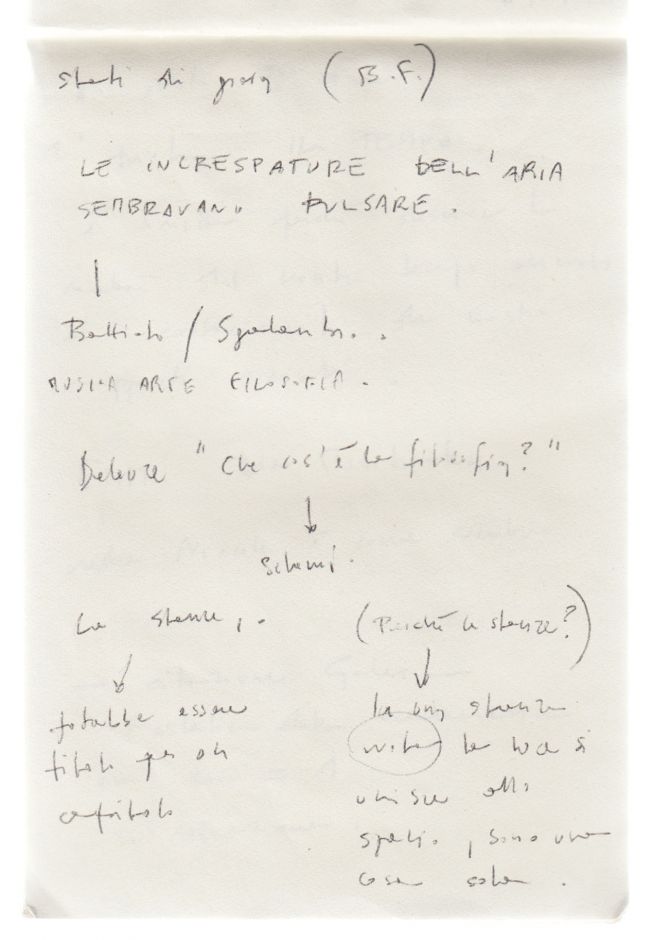 Stati di gioia (B.F.)
LE INCRESPATURE DELL'ARIA
SEMBRAVANO PULSARE.
Battiato / Sgalambro..
MUSICA ARTE FILOSOFIA.
Deleuze "Che cos'è la filosofia?"
↓
Schemi.
La stanza,.
(Perché la stanza?)
potrebbe essere
titolo per un
capitolo
In una stanza
vuota la luce si
unisce allo
spazio, sono una
cosa sola.